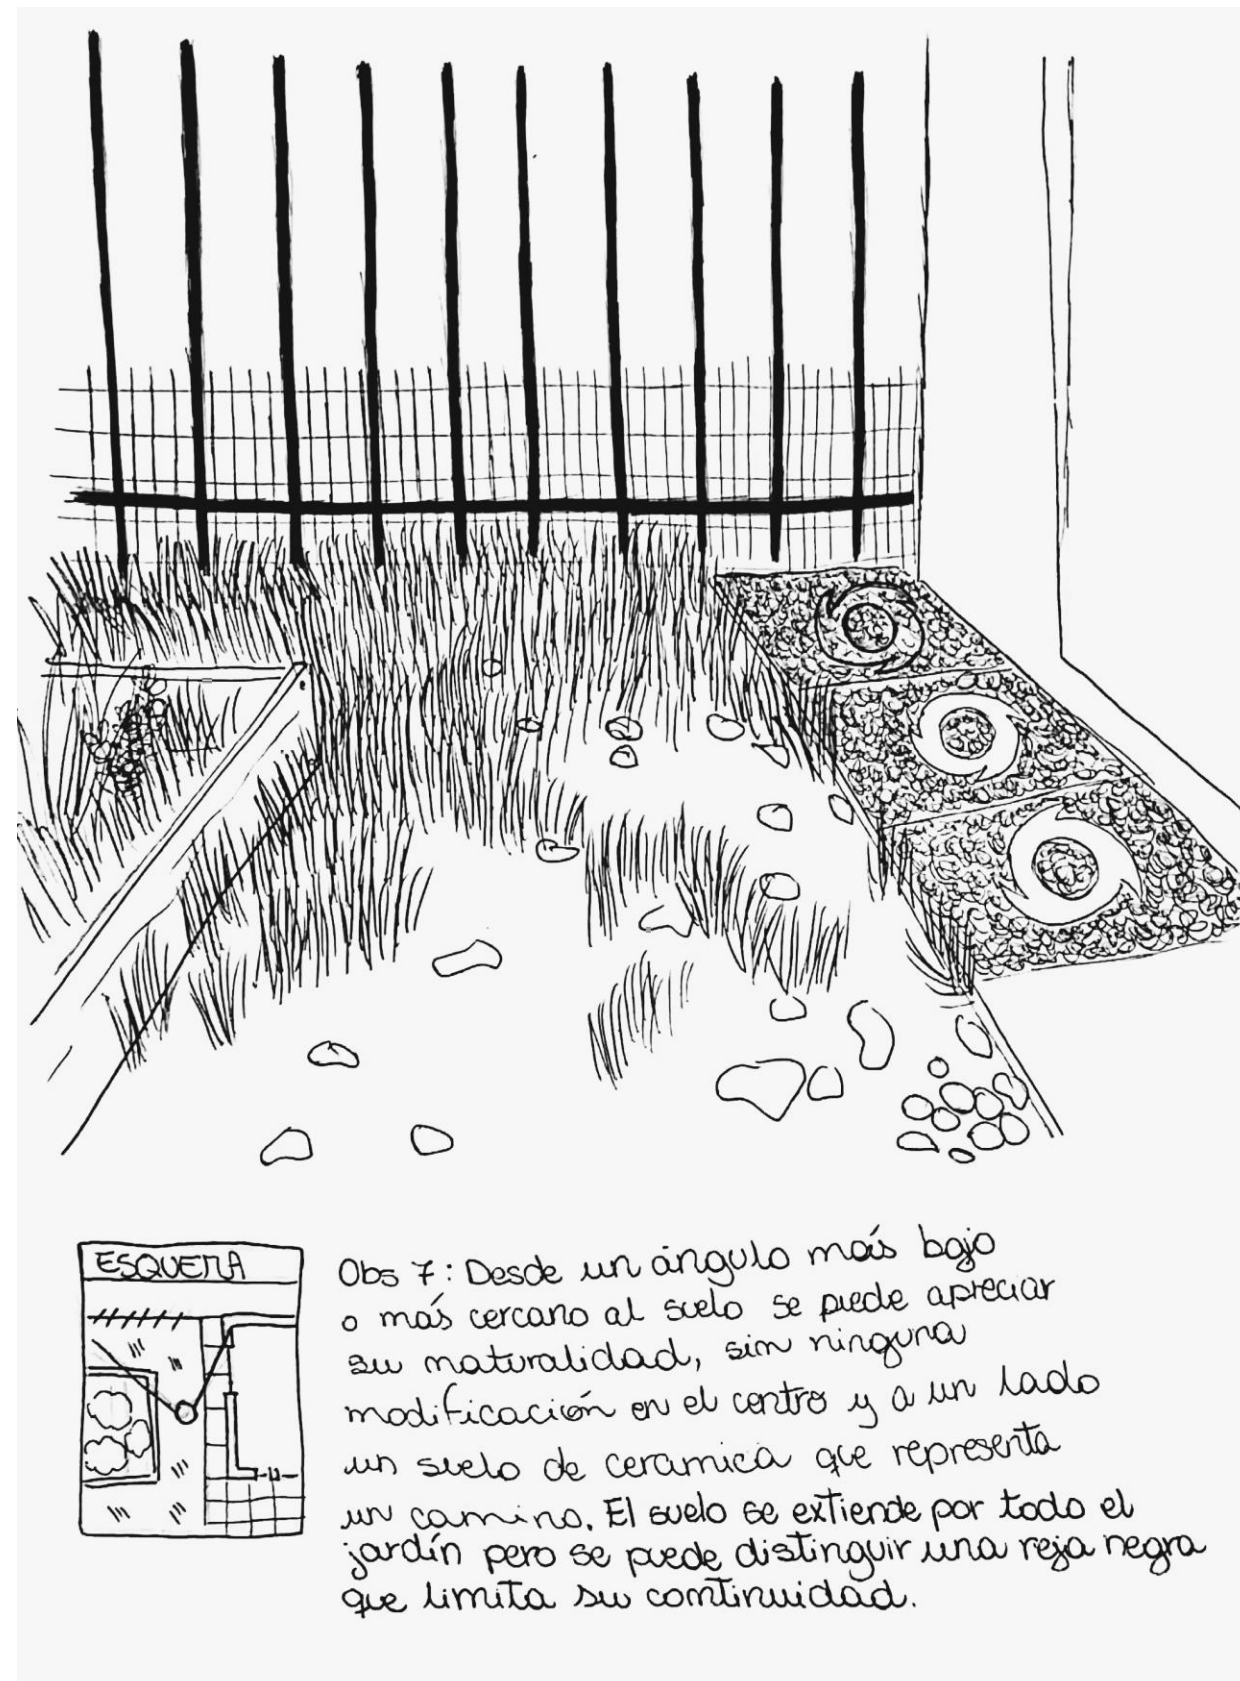 ESQUEMA
Obs 7: Desde un ángulo más bajo
o más cercano al suelo se puede apreciar
su naturalidad, sin ninguna
modificación en el centro y a un lado
un suelo de ceramica que representa
un camino. El suelo se extiende por todo el
jardín pero se puede distinguir una reja negra
que limita su continuidad.